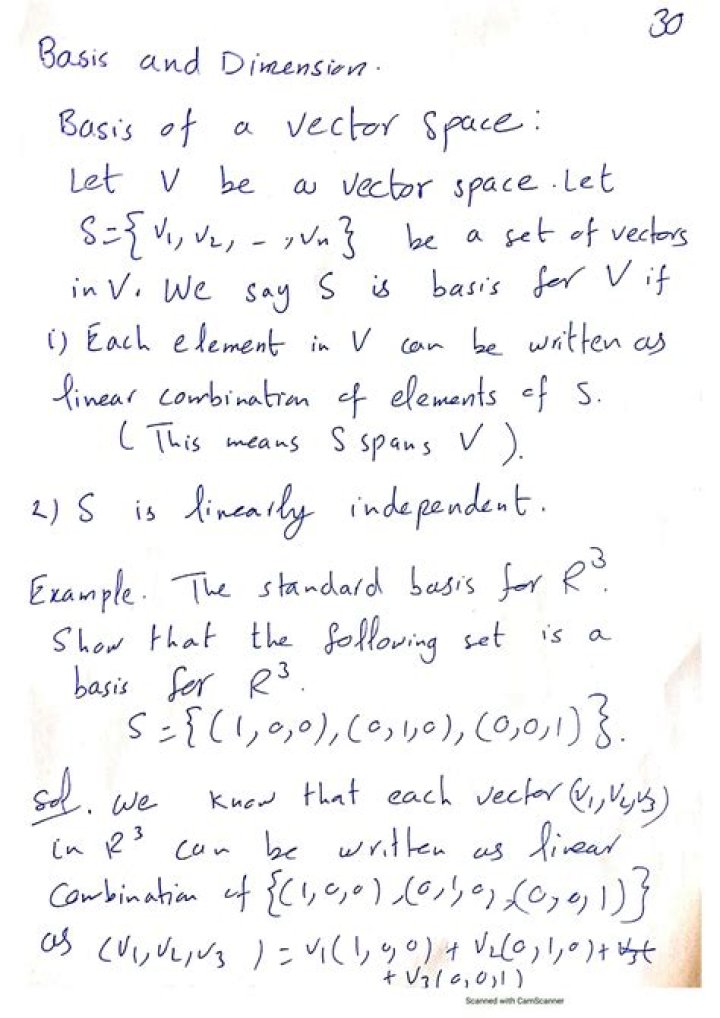 30
Basis and Dimension.
Basis of a vector space:
Let V be a vector space. Let
S={V1, V2, -, Vn} be a set of vectors
in V. We say S is basis for V if
i) Each element in V can be written as
linear combination of elements of S.
( This means S spans V ).
2) S is linearly independent.
Example. The standard basis for R³.
Show that the following set is a
basis for R³.
S={(1,0,0),(0,1,0),(0,0,1)}.
Sol. we know that each vector (V1,V2,V3)
in R³ can be written as linear
Combination of {(1,0,0),(0,1,0),(0,0,1)}
as (V1,V2,V3) = V1(1,0,0) + V2(0,1,0)+
+ V3(0,0,1)
Scanned with CamScanner